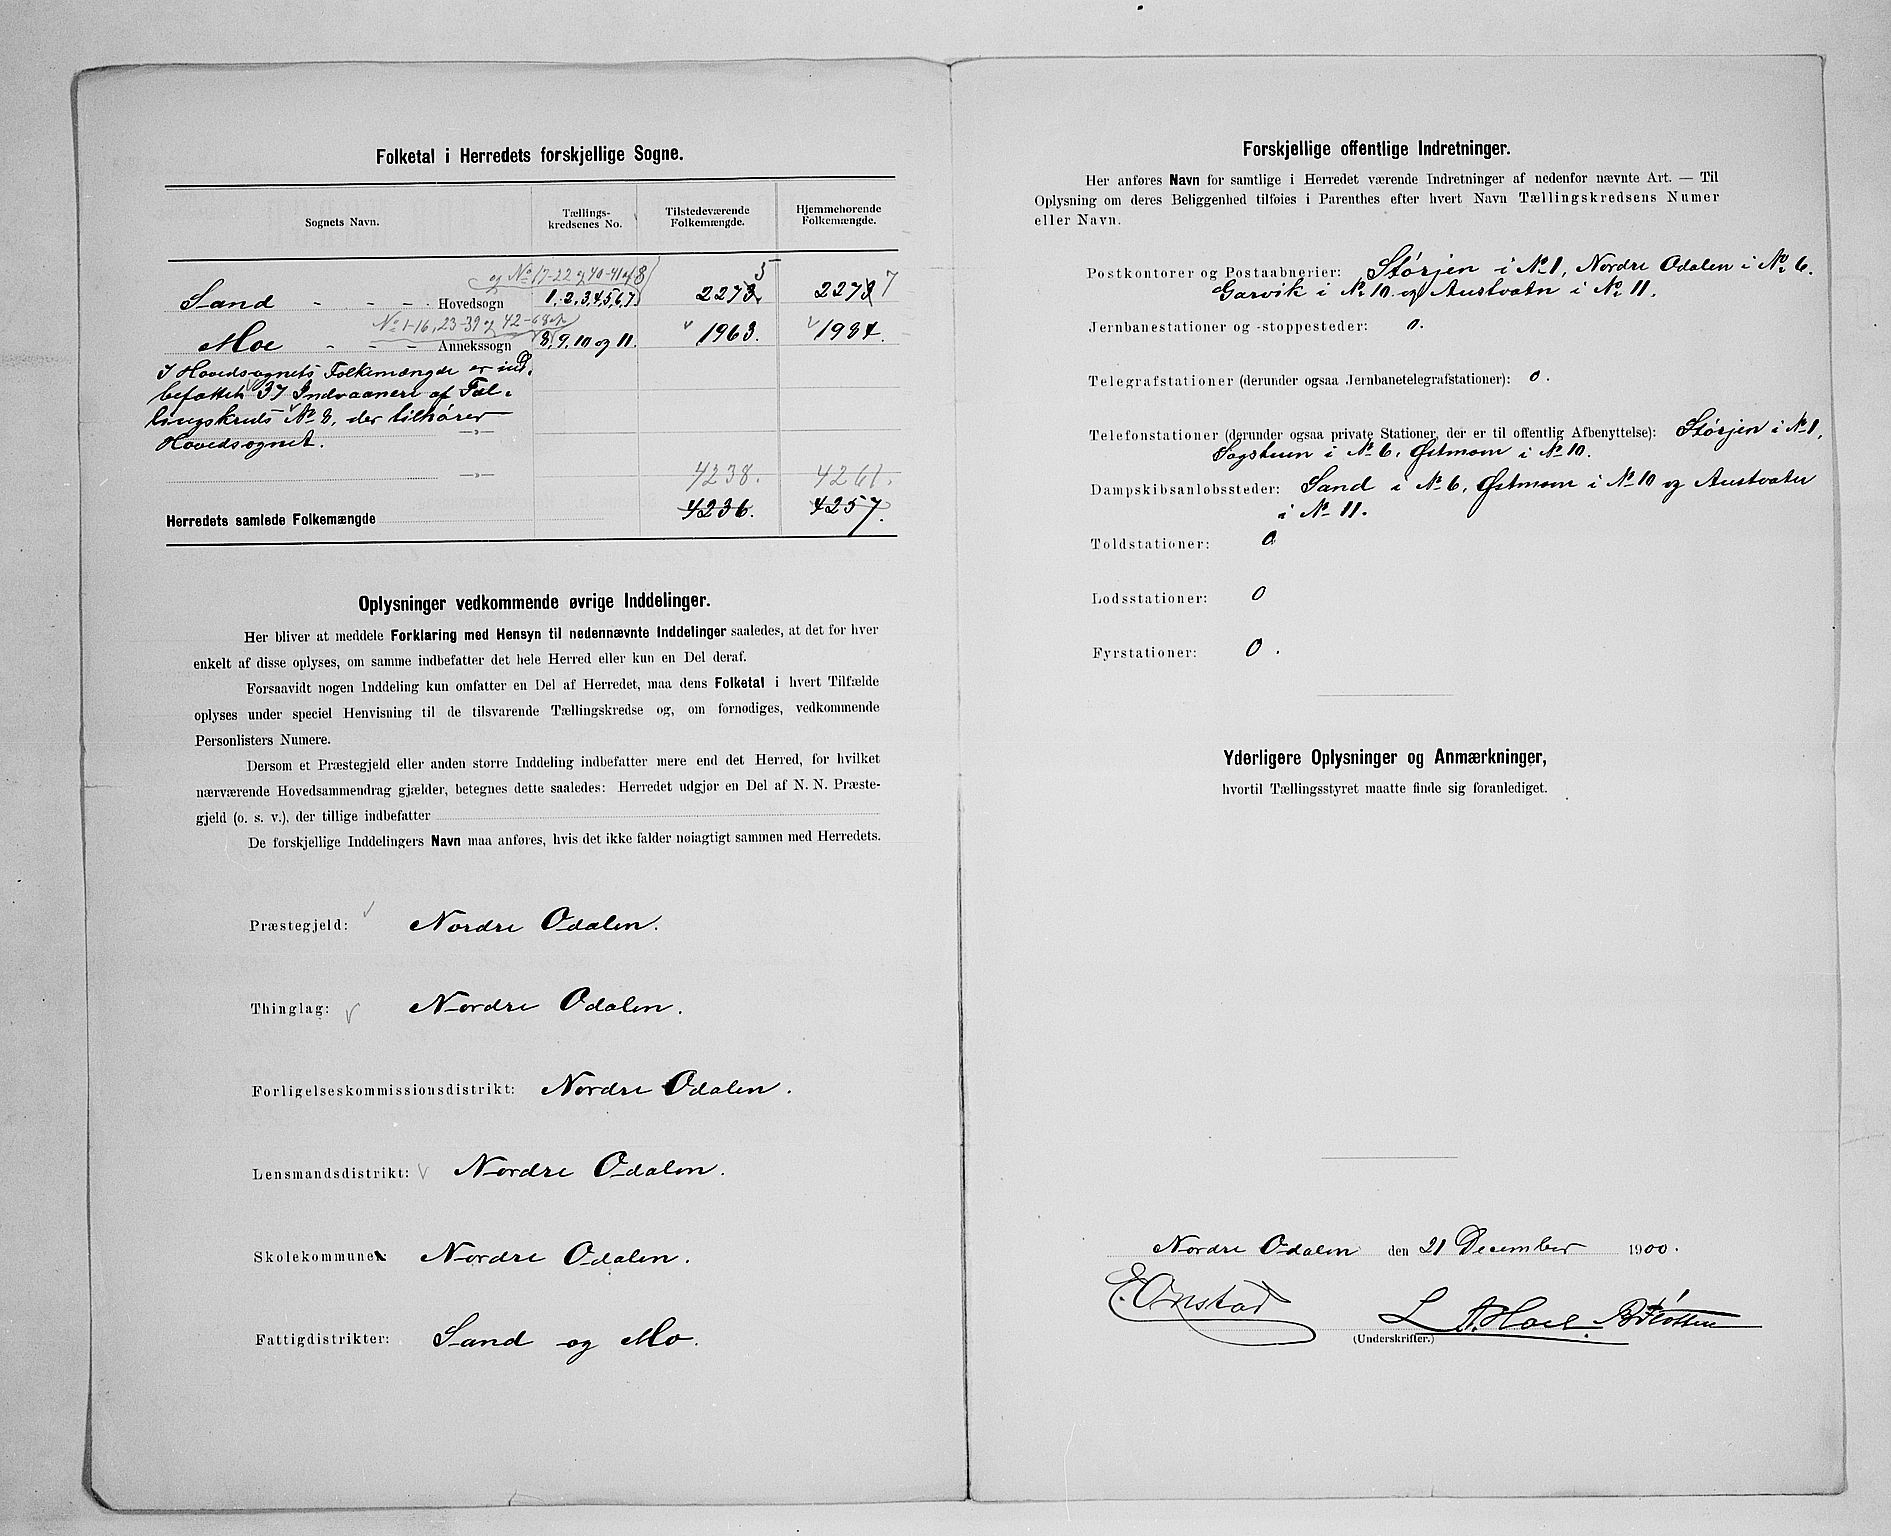 Folketal i Herredets forskjellige Sogne.
Sognets Navn.
Tællings-
kredsenes No.
Tilstedeværende
Folkemængde.
Hjemmehørende
Folkemængde.
og No 17-22 og 40-41 af 8
Sand - - - Hovedsogn 1, 2, 3, 4, 5, 6, 7, 2273. 5 2273 7
No 1-16, 23-39 og 42-68 af
Moe - - - Annekssogn 8, 9, 10 og 11. 1963. 1984.
I Hovedsognets Folkemængde er ind-
befattet 37 Indvaanere af Tæl-
lingskreds No 8, der tilhører
Hovedsognet.
4238. 4261.
Herredets samlede Folkemængde 4236. 4257.
Oplysninger vedkommende øvrige Inddelinger.
Her bliver at meddele Forklaring med Hensyn til nedennævnte Inddelinger saaledes, at det for hver
enkelt af disse oplyses, om samme indbefatter det hele Herred eller kun en Del deraf.
Forsaavidt nogen Inddeling kun omfatter en Del af Herredet, maa dens Folketal i hvert Tilfælde
oplyses under speciel Henvisning til de tilsvarende Tællingskredse og, om fornødiges, vedkommende
Personlisters Numere.
Dersom et Præstegjeld eller anden større Inddeling indbefatter mere end det Herred, for hvilket
nærværende Hovedsammendrag gjælder, betegnes dette saaledes: Herredet udgjør en Del af N. N. Præste-
gjeld (o. s. v.), der tillige indbefatter
De forskjellige Inddelingers Navn maa anføres, hvis det ikke falder nøiagtigt sammen med Herredets.
Præstegjeld: Nordre Odalen.
Thinglag: Nordre Odalen.
Forligelseskommissionsdistrikt: Nordre Odalen.
Lensmandsdistrikt: Nordre Odalen.
Skolekommune: Nordre Odalen.
Fattigdistrikter: Sand og Mo.
Forskjellige offentlige Indretninger.
Her anføres Navn for samtlige i Herredet værende Indretninger af nedenfor nævnte Art. — Til
Oplysning om deres Beliggenhed tilføies i Parenthes efter hvert Navn Tællingskredsens Numer
eller Navn.
Postkontorer og Postaabnerier: Størjen i No 1, Nordre Odalen i No 6.
Garvik i No 10 og Austvatn i No 11.
Jernbanestationer og -stoppesteder: 0.
Telegrafstationer (derunder ogsaa Jernbanetelegrafstationer): 0.
Telefonstationer (derunder ogsaa private Stationer, der er til offentlig Afbenyttelse): Størjen i No 1,
Sagstuen i No 6, Østmoen i No 10.
Dampskibsanløbssteder: Sand i No 6, Østmoen i No 10 og Austvatn
i No 11.
Toldstationer: 0
Lodsstationer: 0
Fyrstationer: 0.
Yderligere Oplysninger og Anmærkninger,
hvortil Tællingsstyret maatte finde sig foranlediget.
Nordre Odalen den 21 December 1900.
E. Onstad L. A. Hoel.
(Underskrifter.)